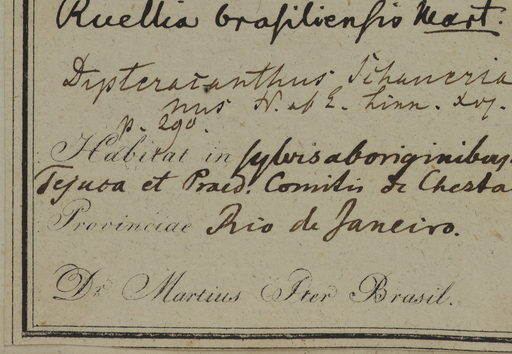 Ruellia brasiliensis Mart.
Dipteracanthus Schaueria
nus N. ab E. Linn. XVI.
p. 290.
Habitat in sylvis aboriginibus
Tejuca et Praed. Comitis de Chesta
Provinciae Rio de Janeiro.
Dr. Martius Iter Brasil.